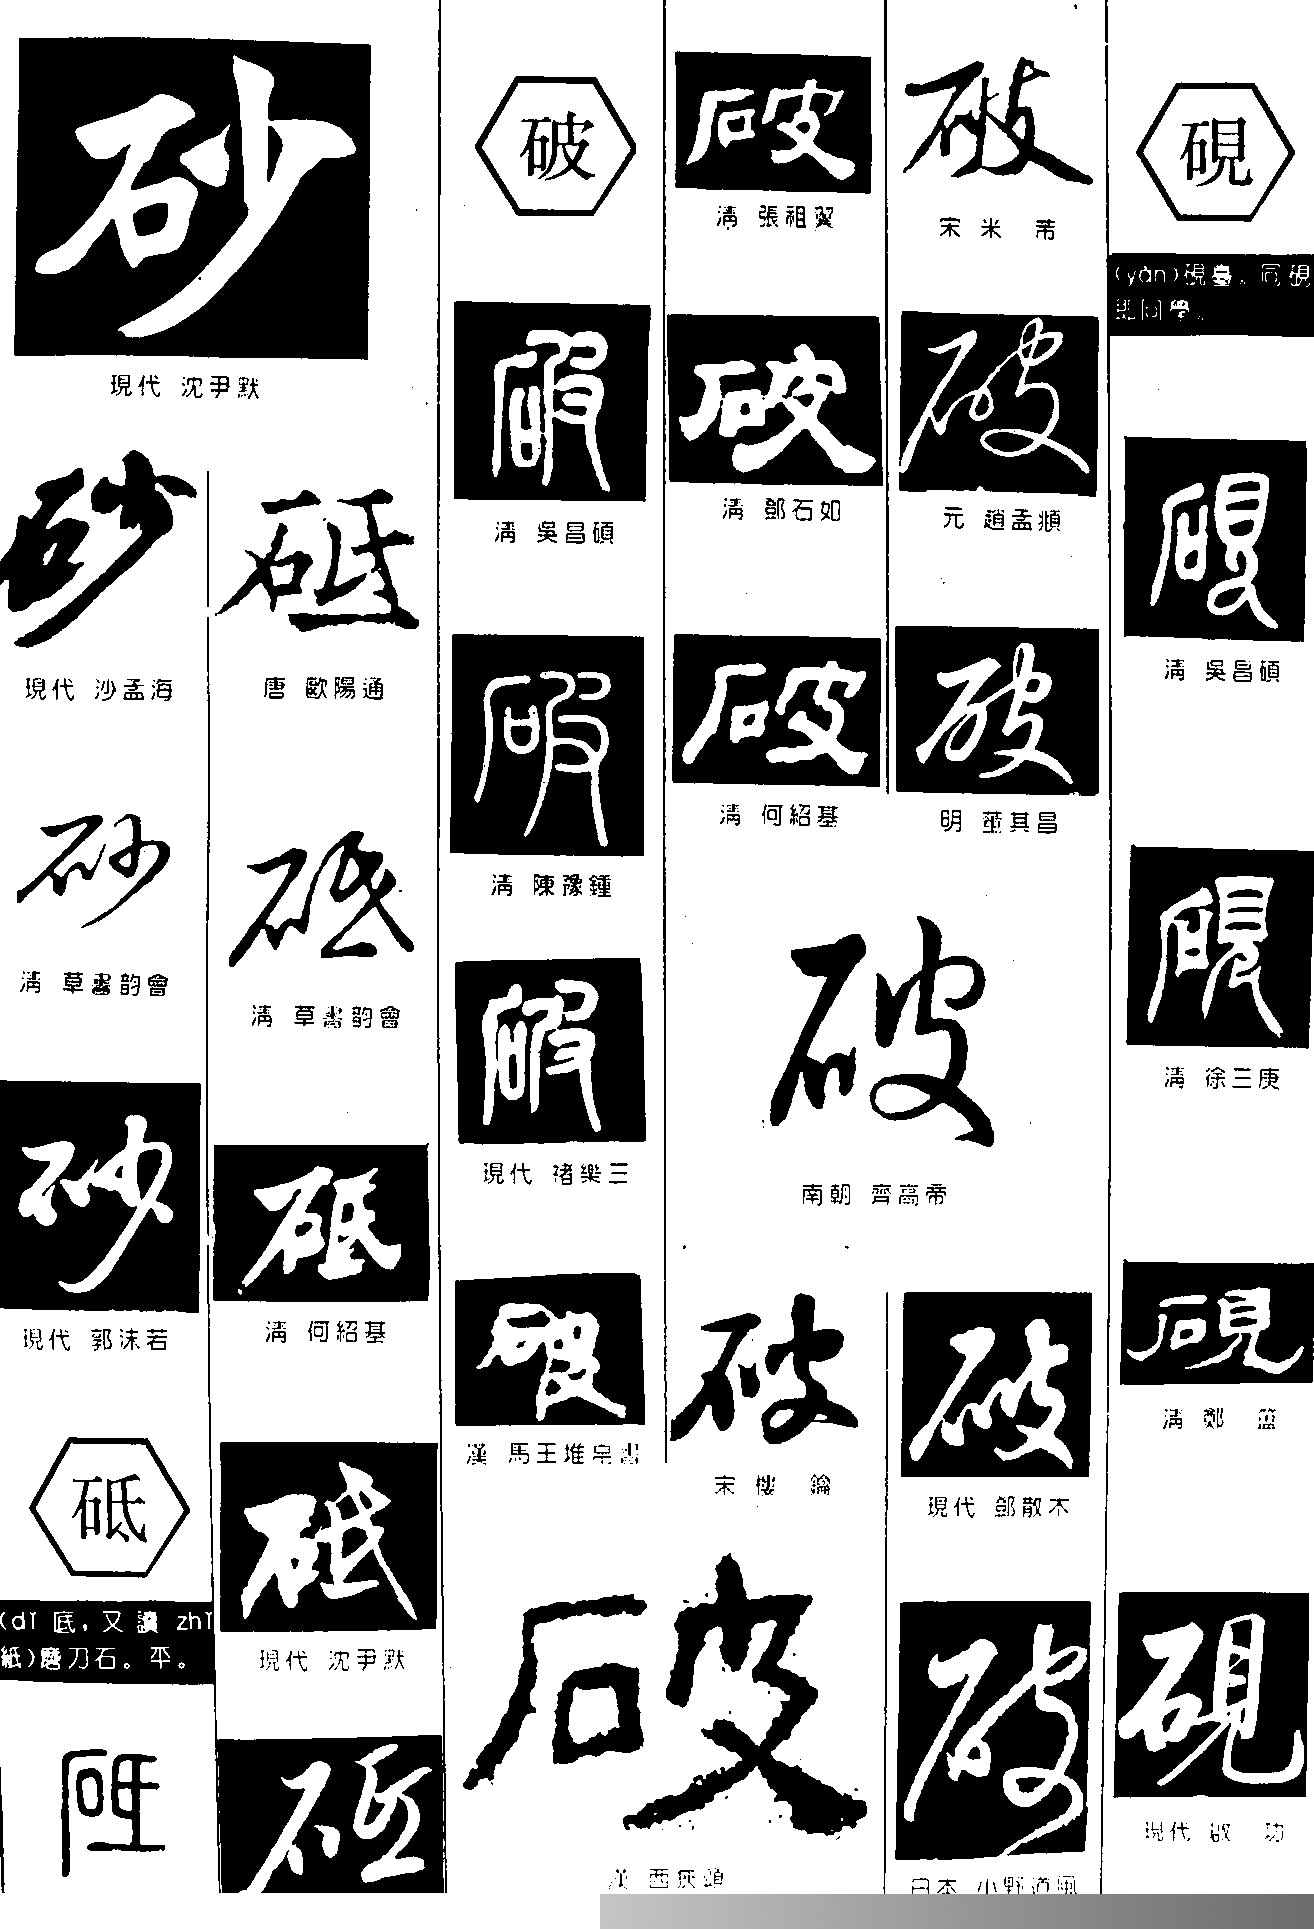 砂
現代 沈尹默
砂
現代 沙孟海
砂
清 草書韵會
砂
現代 郭沫若
砥
(dǐ 底,又讀 zhǐ
紙)磨刀石。平。
砥
砥
唐 歐陽通
砥
清 草書韵會
砥
清 何紹基
砥
現代 沈尹默
砥
破
破
清 吳昌碩
破
清 陳豫鍾
破
現代 褚樂三
破
漢 馬王堆帛書
破
清 張祖翼
破
清 鄧石如
破
清 何紹基
破
南朝 齊高帝
破
宋 樓 鑰
破
漢 西狹頌
破
宋 米 芾
破
元 趙孟頫
破
明 董其昌
破
現代 鄧散木
破
日本 小野道風
硯
(yàn)硯臺。同硯
即同學。
硯
清 吳昌碩
硯
清 徐三庚
硯
清 鄭 簠
硯
現代 啟 功